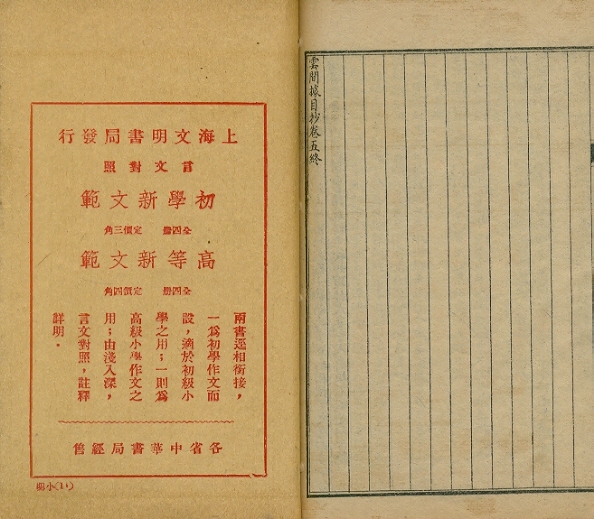 雲間據目抄卷五終
上海文明書局發行
言文對照
初學新文範
全四冊 定價三角
高等新文範
全四冊 定價四角
兩書逕相銜接，
一爲初學作文而
設，適於初級小
學之用；一則爲
高級小學作文之
用；由淺入深，
言文對照，註釋
詳明．
各省中華書局經售